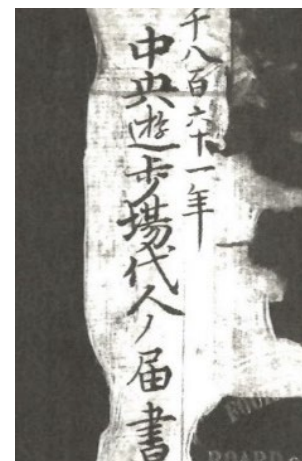 千八百六十一年
中央遊歩場代人ノ届書